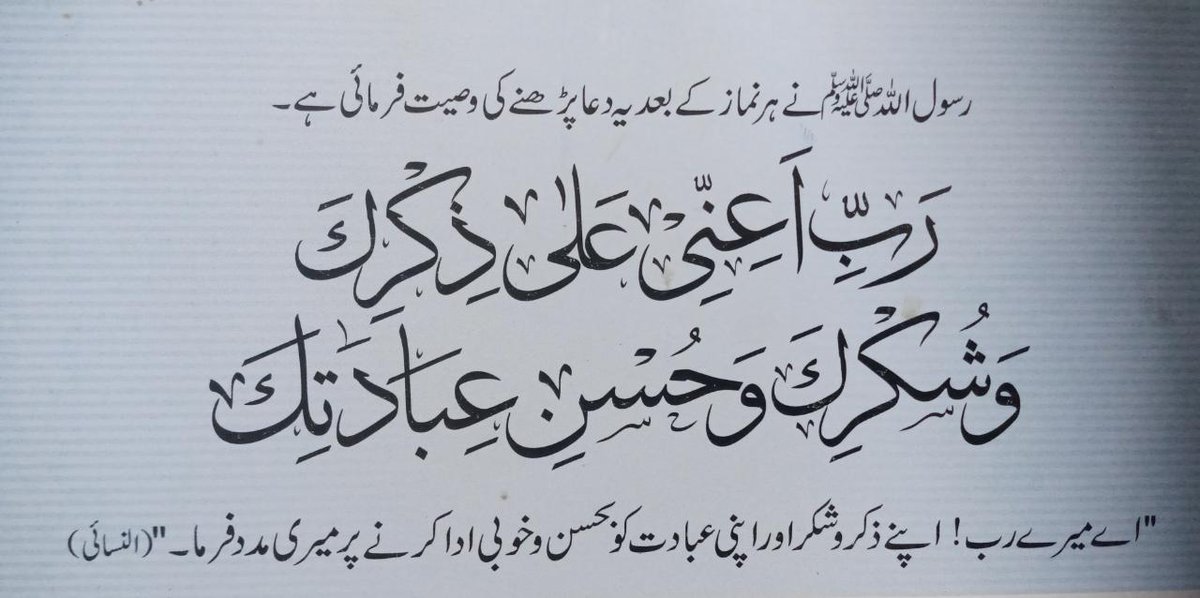 رسول اللہ ﷺ نے ہر نماز کے بعد یہ دعا پڑھنے کی وصیت فرمائی ہے۔
رَبِّ اَعِنِّیْ عَلٰی ذِکْرِكَ
وَشُکْرِكَ وَحُسْنِ عِبَادَتِكَ
"اے میرے رب! اپنے ذکر و شکر اور اپنی عبادت کو بحسن و خوبی ادا کرنے پر میری مدد فرما۔" (النسائی)